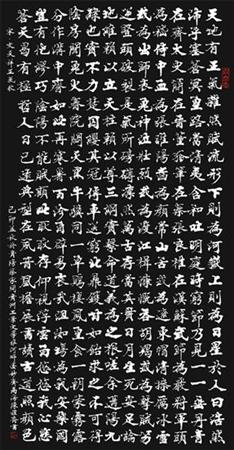 天地有正氣雜然賦流形下則為河嶽上則為日星於人曰浩然
沛乎塞蒼冥皇路當清夷含和吐明庭時窮節乃見一一垂丹青
在齊太史簡在晉董狐筆在秦張良椎在漢蘇武節為嚴將軍頭
為嵇侍中血為張睢陽齒為顏常山舌或為遼東帽清操厲冰雪
或為出師表鬼神泣壯烈或為渡江楫慷慨吞胡羯或為擊賊笏
逆豎頭破裂是氣所磅礴凜烈萬古存當其貫日月生死安足論
地維賴以立天柱賴以尊三綱實係命道義為之根嗟予遘陽九
隸也實不力楚囚纓其冠傳車送窮北鼎鑊甘如飴求之不可得
陰房闃鬼火春院閟天黑牛驥同一皂雞棲鳳凰食一朝蒙霧露
分作溝中瘠如此再寒暑百沴自辟易哀哉沮洳場為我安樂國
豈有他繆巧陰陽不能賊顧此耿耿在仰視浮雲白悠悠我心悲
蒼天曷有極哲人日已遠典刑在夙昔風簷展書讀古道照顏色
宋文天祥正氣歌
己卯